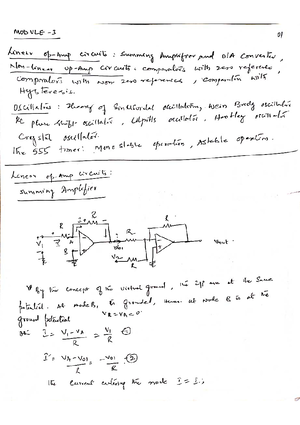 MODULE -3
01
Linear op-Amp circuits: Summing Amplifier and D/A Converter,
Non-linear op-Amp circuits. comparators with zero reference,
Comparators with non zero references, Comparators with
Hysteresis.
Oscillators: Theory of Sinusoidal oscillation, Wein Bridge oscillator
RC phase shift oscillator, Colpitts oscillator. Hartley oscillator
Crystal oscillator.
The 555 timer: Monostable operation, Astable operation.
Linear op-Amp circuits:
Summing Amplifier
R
R
R
R
V1
I
A
B
Vo1
R
Vout.
By the concept of the virtual ground, the i/p are at the same
potential. at node B, is grounded, hence at node A is at the
ground potential
VB = VA = 0
I = V1 - VA / R = V1 / R ①
I = VA - Vo1 / R = -Vo1 / R ②
the current entering the node I =